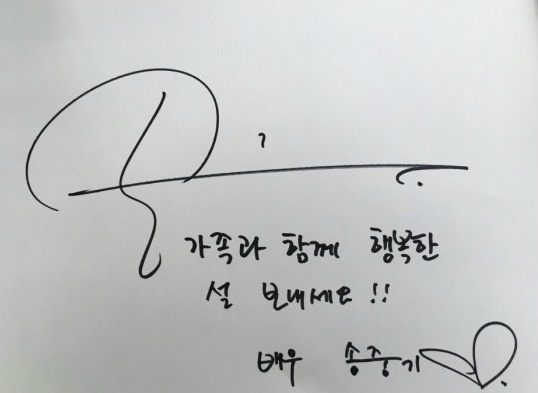 가족과 함께 행복한
설 보내세요 !!
배우 송중기